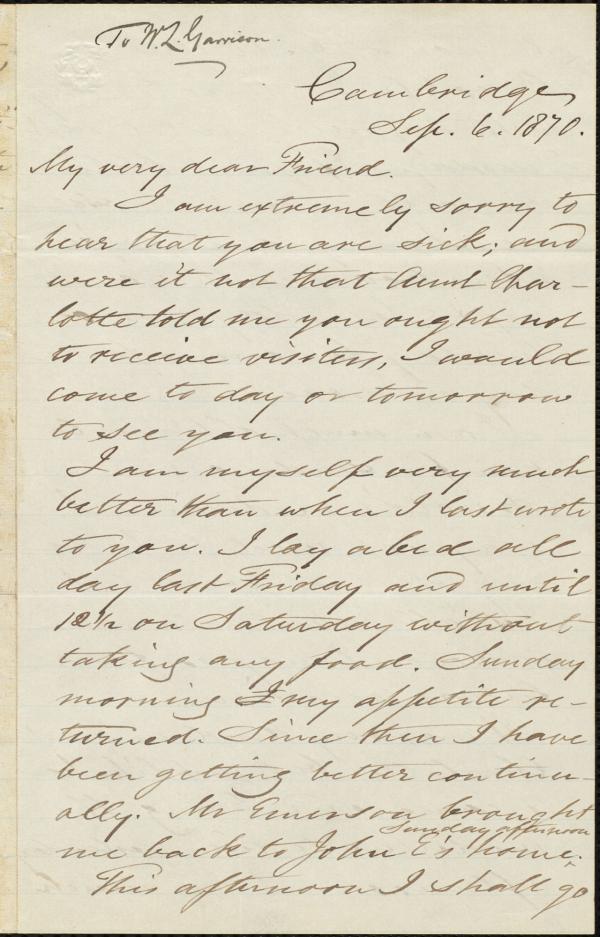 To W. L. Garrison.
Cambridge
Sep. 6. 1870.
My very dear Friend.
I am extremely sorry to
hear that you are sick; and
were it not that Aunt Char-
lotte told me you ought not
to receive visitors, I would
come to day or tomorrow
to see you.
I am myself very much
better than when I last wrote
to you. I lay abed all
day last Friday and until
12 1/2 on Saturday without
taking any food. Sunday
morning my appetite re-
turned. Since then I have
been getting better continu-
ally. Mr Emerson brought
Sunday afternoon
me back to John E's home.
This afternoon I shall go